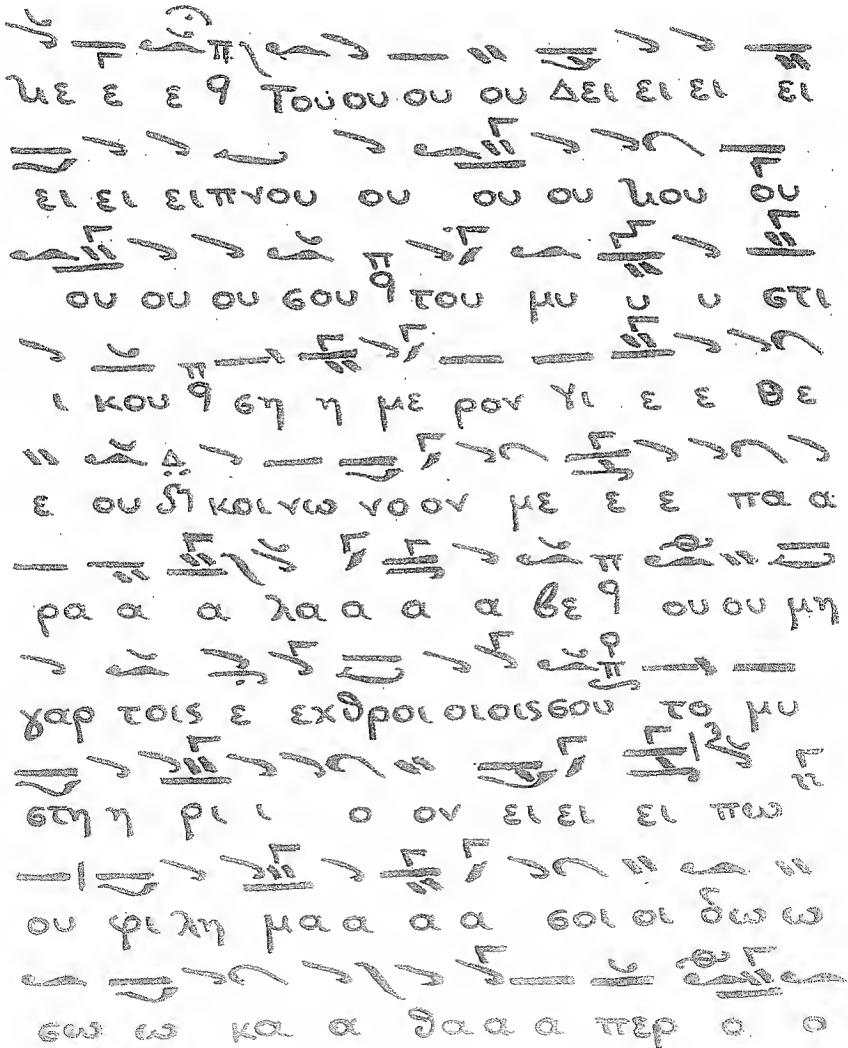 κε ε ε Του ου ου ου Δει ει ει ει
ει ει ειπνου ου ου ου κου ου
ου ου ου σου του μυ υ υ στι
ι κου ση η με ρον Υι ε ε Θε
ε ου κοινω νοον με ε ε πα α
ρα α α λαα α α βε ου ου μη
γαρ τοις ε εχθροι οι οις σου το μυ
στη η ρι ι ο ον ει ει ει πω
ου φι λη μαα α α σοι οι δω ω
σω ω κα α θαα α α περ ο ο